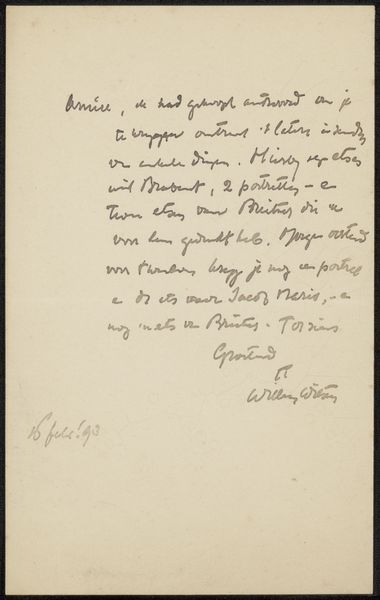 Amice, ik had gehoopt antwoord van je
te krijgen omtrent 't laten inzenden
van enkele dingen. Hierbij etsen
uit Brabant, 2 portretten - en
twee etsen van Breitner die ik
voor hem gedrukt heb. Morgen ochtend
voor krijg je nog een portret
en de ets naar Jacob Maris, - en
nog 'n ets van Breitner.
Groetend
tt
Willem Witsen
16 febr. '93